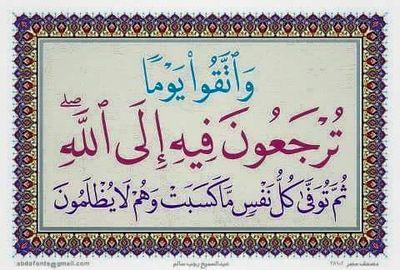 وَٱتَّقُوا۟ يَوْمًا
تُرْجَعُونَ فِيهِ إِلَى ٱللَّهِ ۖ
ثُمَّ تُوَفَّىٰ كُلُّ نَفْسٍ مَّا كَسَبَتْ وَهُمْ لَا يُظْلَمُونَ
abdofonts@gmail.com عبدالسميع رجب سالم